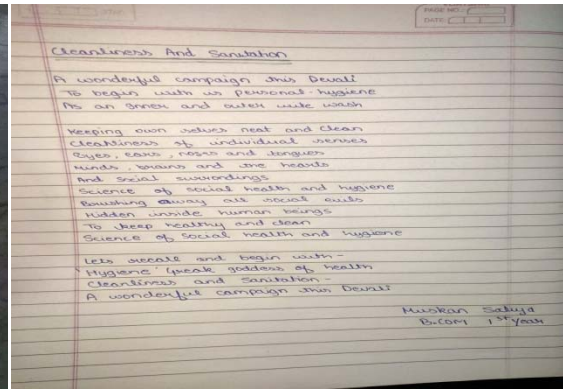 PAGE NO.
DATE:
Cleanliness And Sanitation
A wonderful campaign this Devali
To begin with us personal-hygiene
As an Inner and outer wash
Keeping own selves neat and clean
Cleanliness of individual senses
Eyes, ears, noses and tongues
Minds, brains and the hearts
And Social surrondings
Science of social health and hygiene
Brushing away all social evils
Hidden inside human beings
To keep healthy and clean
Science of social health and hygiene
Lets recall and begin with -
'Hygiene' Greak goddess of health
Cleanliness and Sanitation -
A wonderful campaign this Devali
Muskan Saluja
B.COM 1st Year